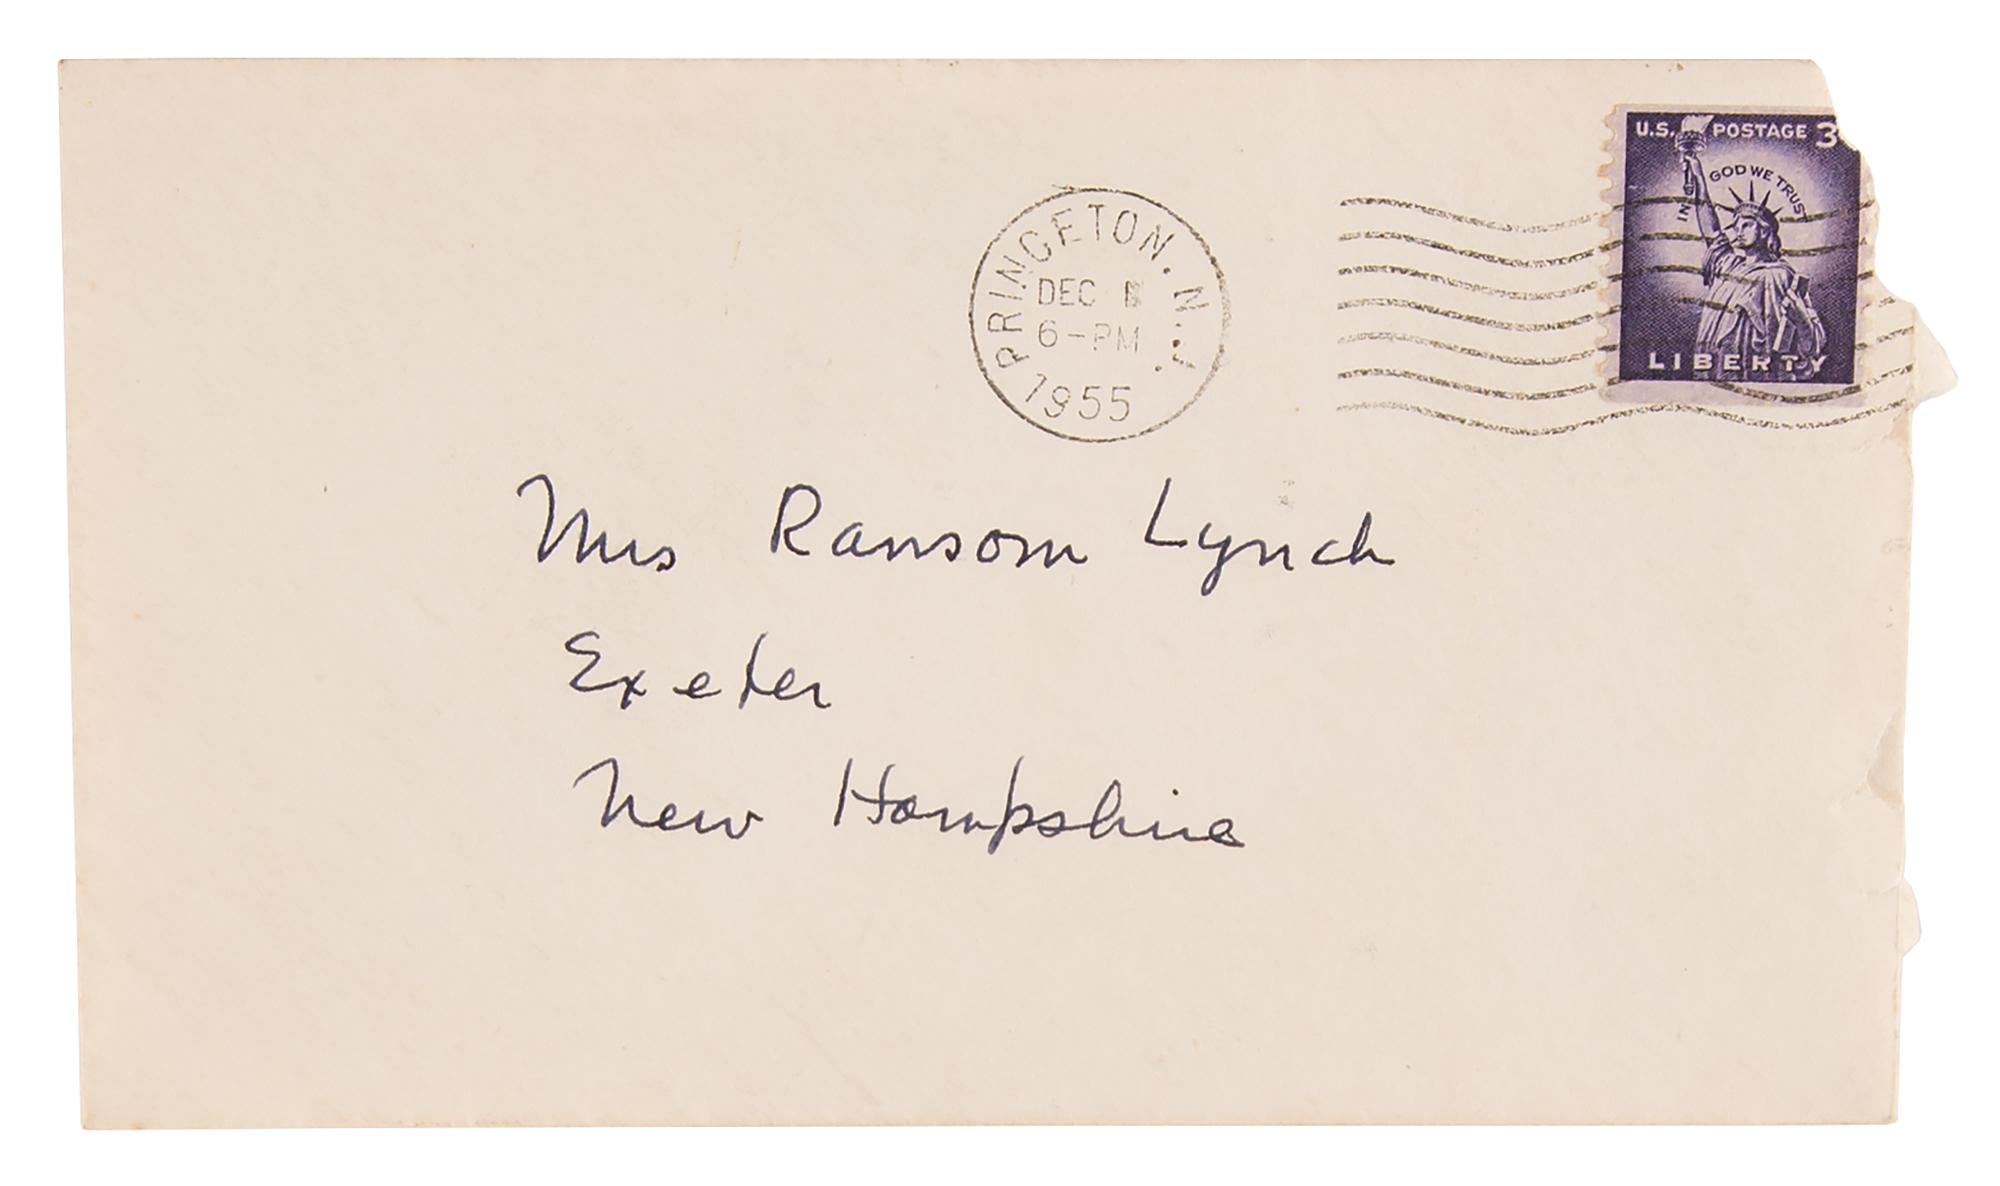 U.S. POSTAGE 3
IN GOD WE TRUST
LIBERTY
PRINCETON. N.J.
DEC
6-PM
1955
Mrs Ransom Lynch
Exeter
New Hampshire